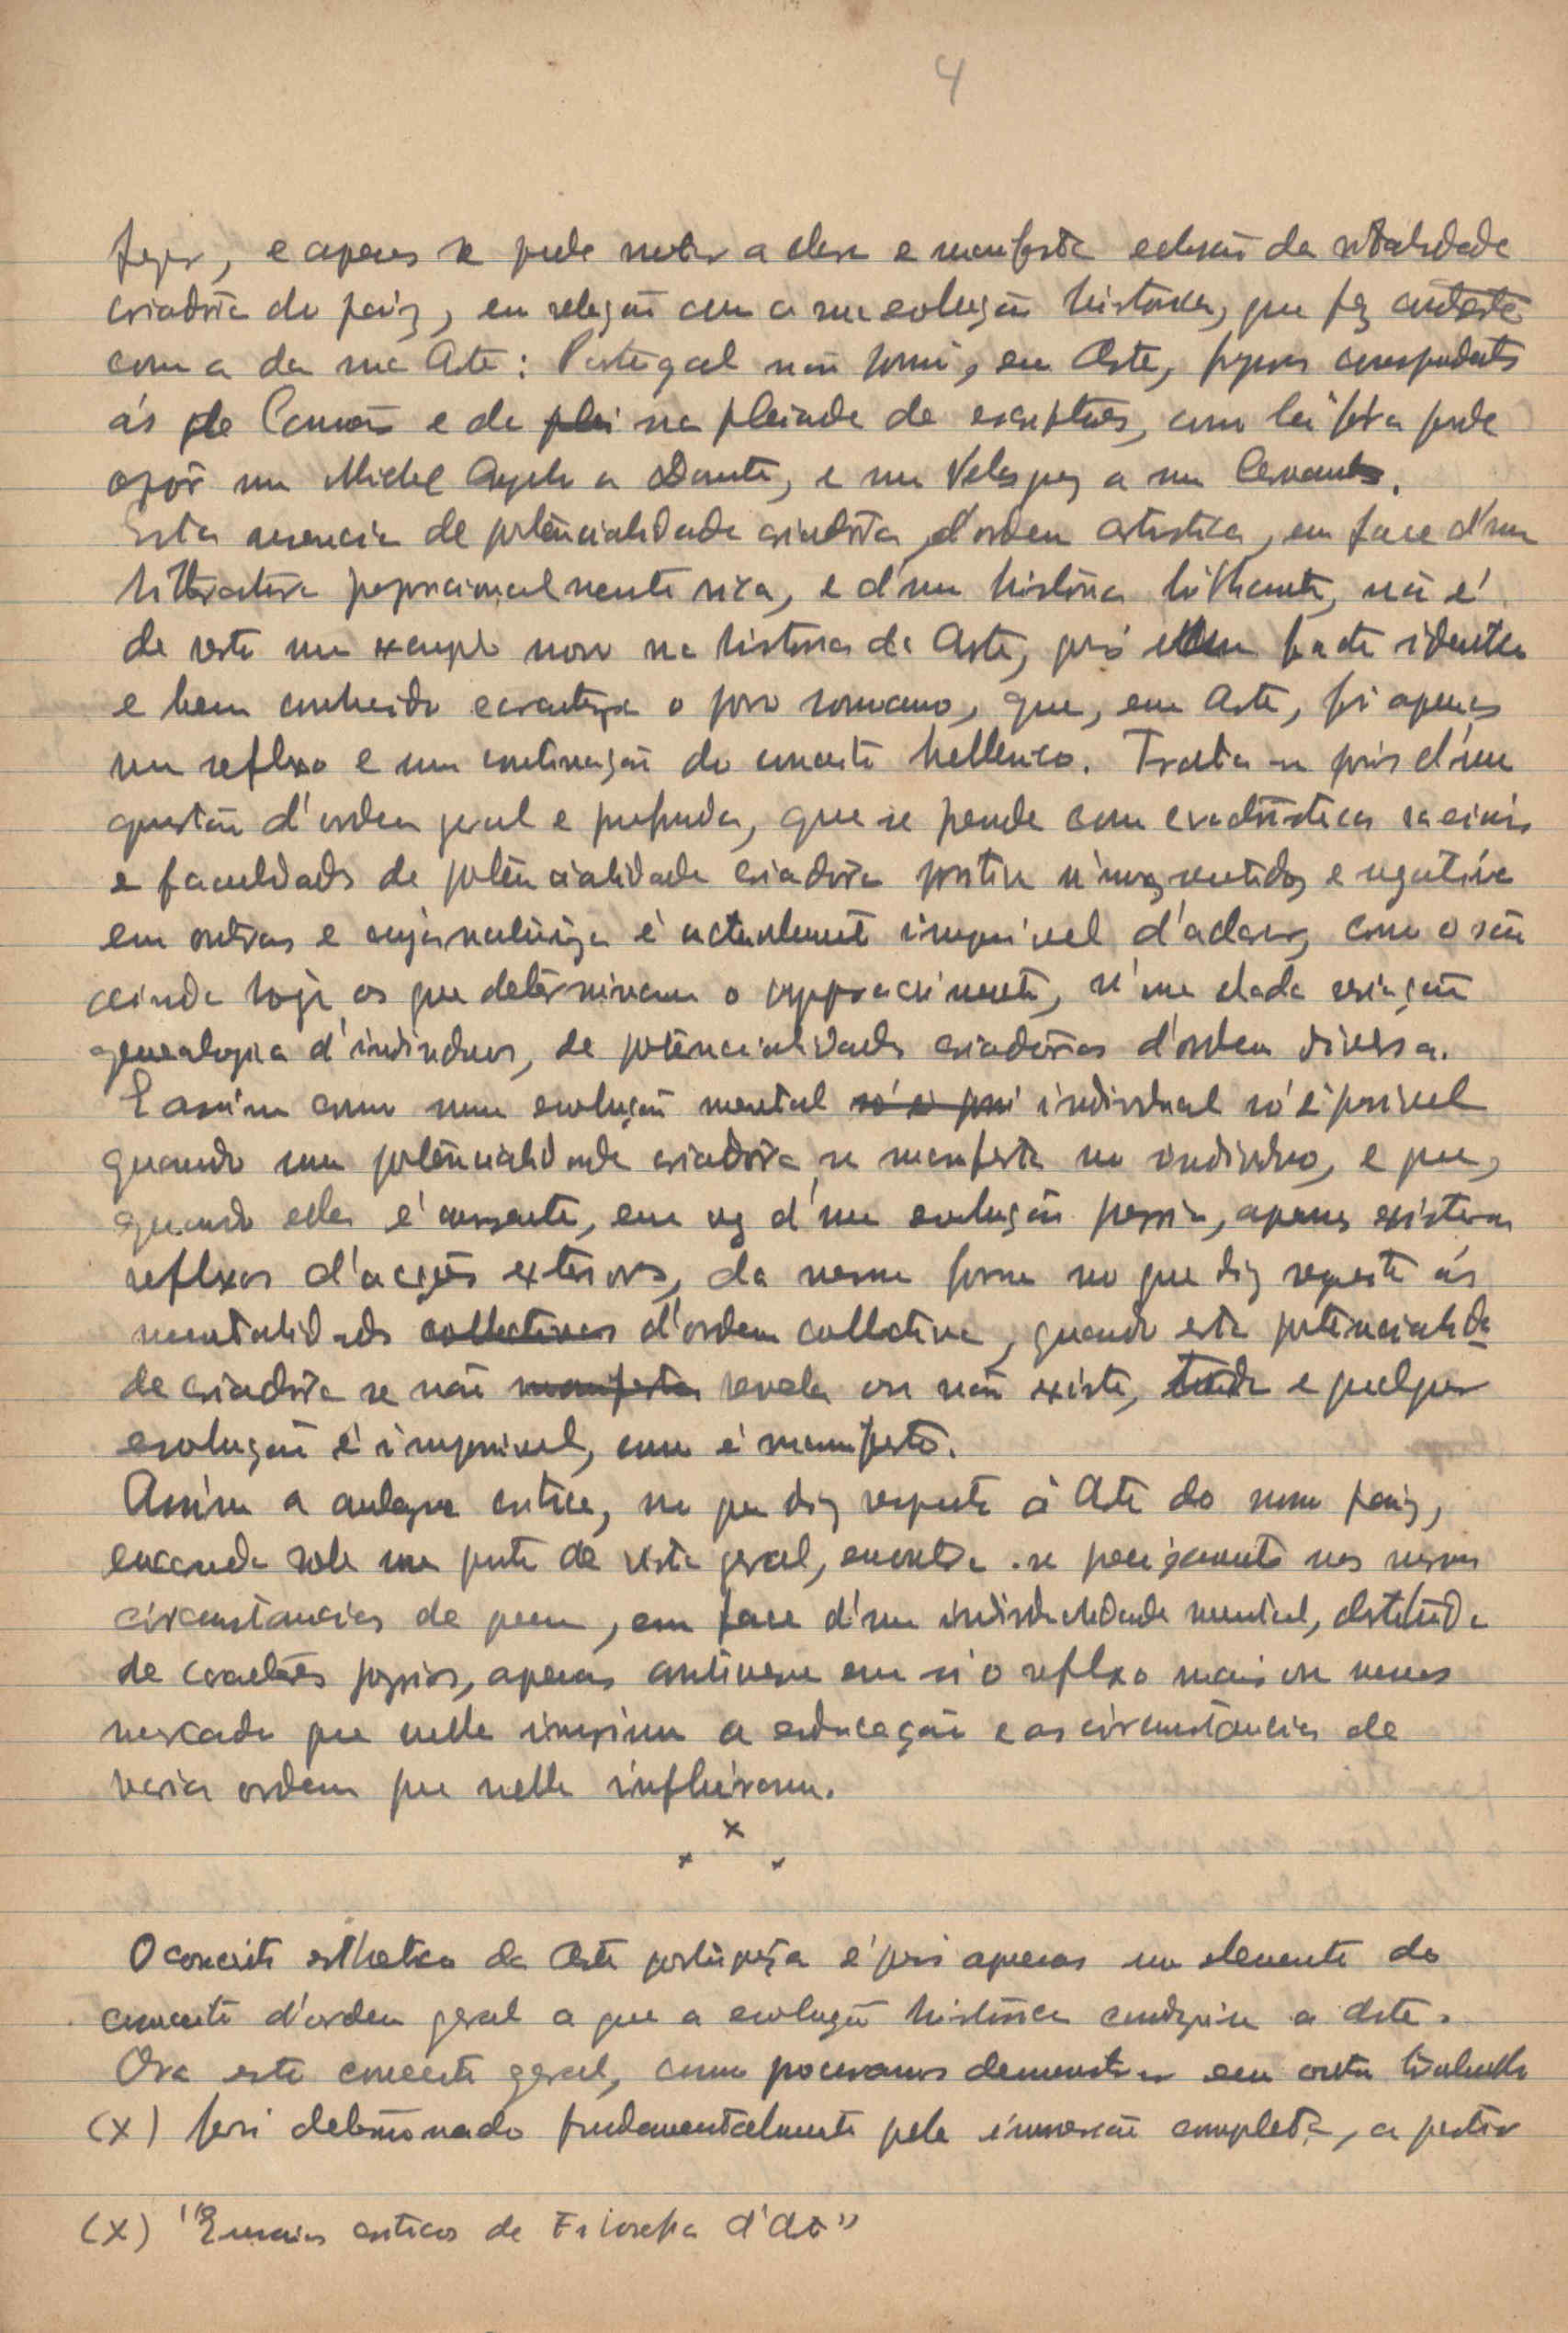 4
fazer, e apenas se pode notar a clara e manifesta eclosão da vitalidade
criadôra do paiz, em relação com a sua evolução historica, que faz contraste
com a da sua Arte: Portugal não possui, em Arte, figuras correspondentes
ás de Camões e da plei sua pleiade de escriptores, como lá fóra pode
opôr um Michel Angelo a Dante, e um Velasquez a um Cervantes.
Esta ausencia de potêncialidade criadôra, d'ordem artistica, em face d'uma
litteratura proporcionalmente rica, e d'uma história brilhante, não é
de resto um exemplo novo na historia da Arte, pois facto identico
e bem conhecido caracteriza o povo romano, que, em Arte, foi apenas
um reflexo e uma continuação do conceito hellenico. Trata-se pois d'uma
questão d'ordem geral e profunda, que se prende com caracteristicas raciais
e faculdades de potêncialidade criadôra positiva n'uns sentidos e negativa
em outros e cuja natureza é actualmente impossivel d'aclarar, como o são
ainda hoje as que determinam o apparecimento, n'uma dada
genealogica d'individuos, de potencialidades criadôras d'ordem diversa.
E assim como uma evolução mental só é possi individual só é possivel
quando uma potêncialidade criadôra se manifesta no individuo, e que,
quando ella é ausente, em vez d'uma evolução propria, apenas existem
reflexos d'acções exteriores, da mesma forma no que diz respeito ás
mentalidades collectivas d'ordem collectiva, quando esta potêncialida-
de criadôra se não manifesta revela ou não existe, toda e qualquer
evolução é impossivel, como é manifesto.
Assim a analyse critica, no que diz respeito á Arte do nosso paiz,
encarada sob um ponto de vista geral, encontra-se precisamente nas mesmas
circunstancias de quem, em face d'uma individualidade mental, destituida
de caractéres proprios, apenas contivesse em si o reflexo mais ou menos
marcado que nella imprime a educação e as circunstâncias de
varia ordem que nella influiram.
x
x x
O conceito esthetico da Arte portugueza é pois apenas um elemento do
conceito d'ordem geral a que a evolução histórica conduziu a Arte.
Ora este conceito geral, como procuramos demonstrar em outro trabalho
(x) foi determinado fundamentalmente pela inversão completa, a partir
(x) "Ensaios criticos de Filosofia d'Arte"